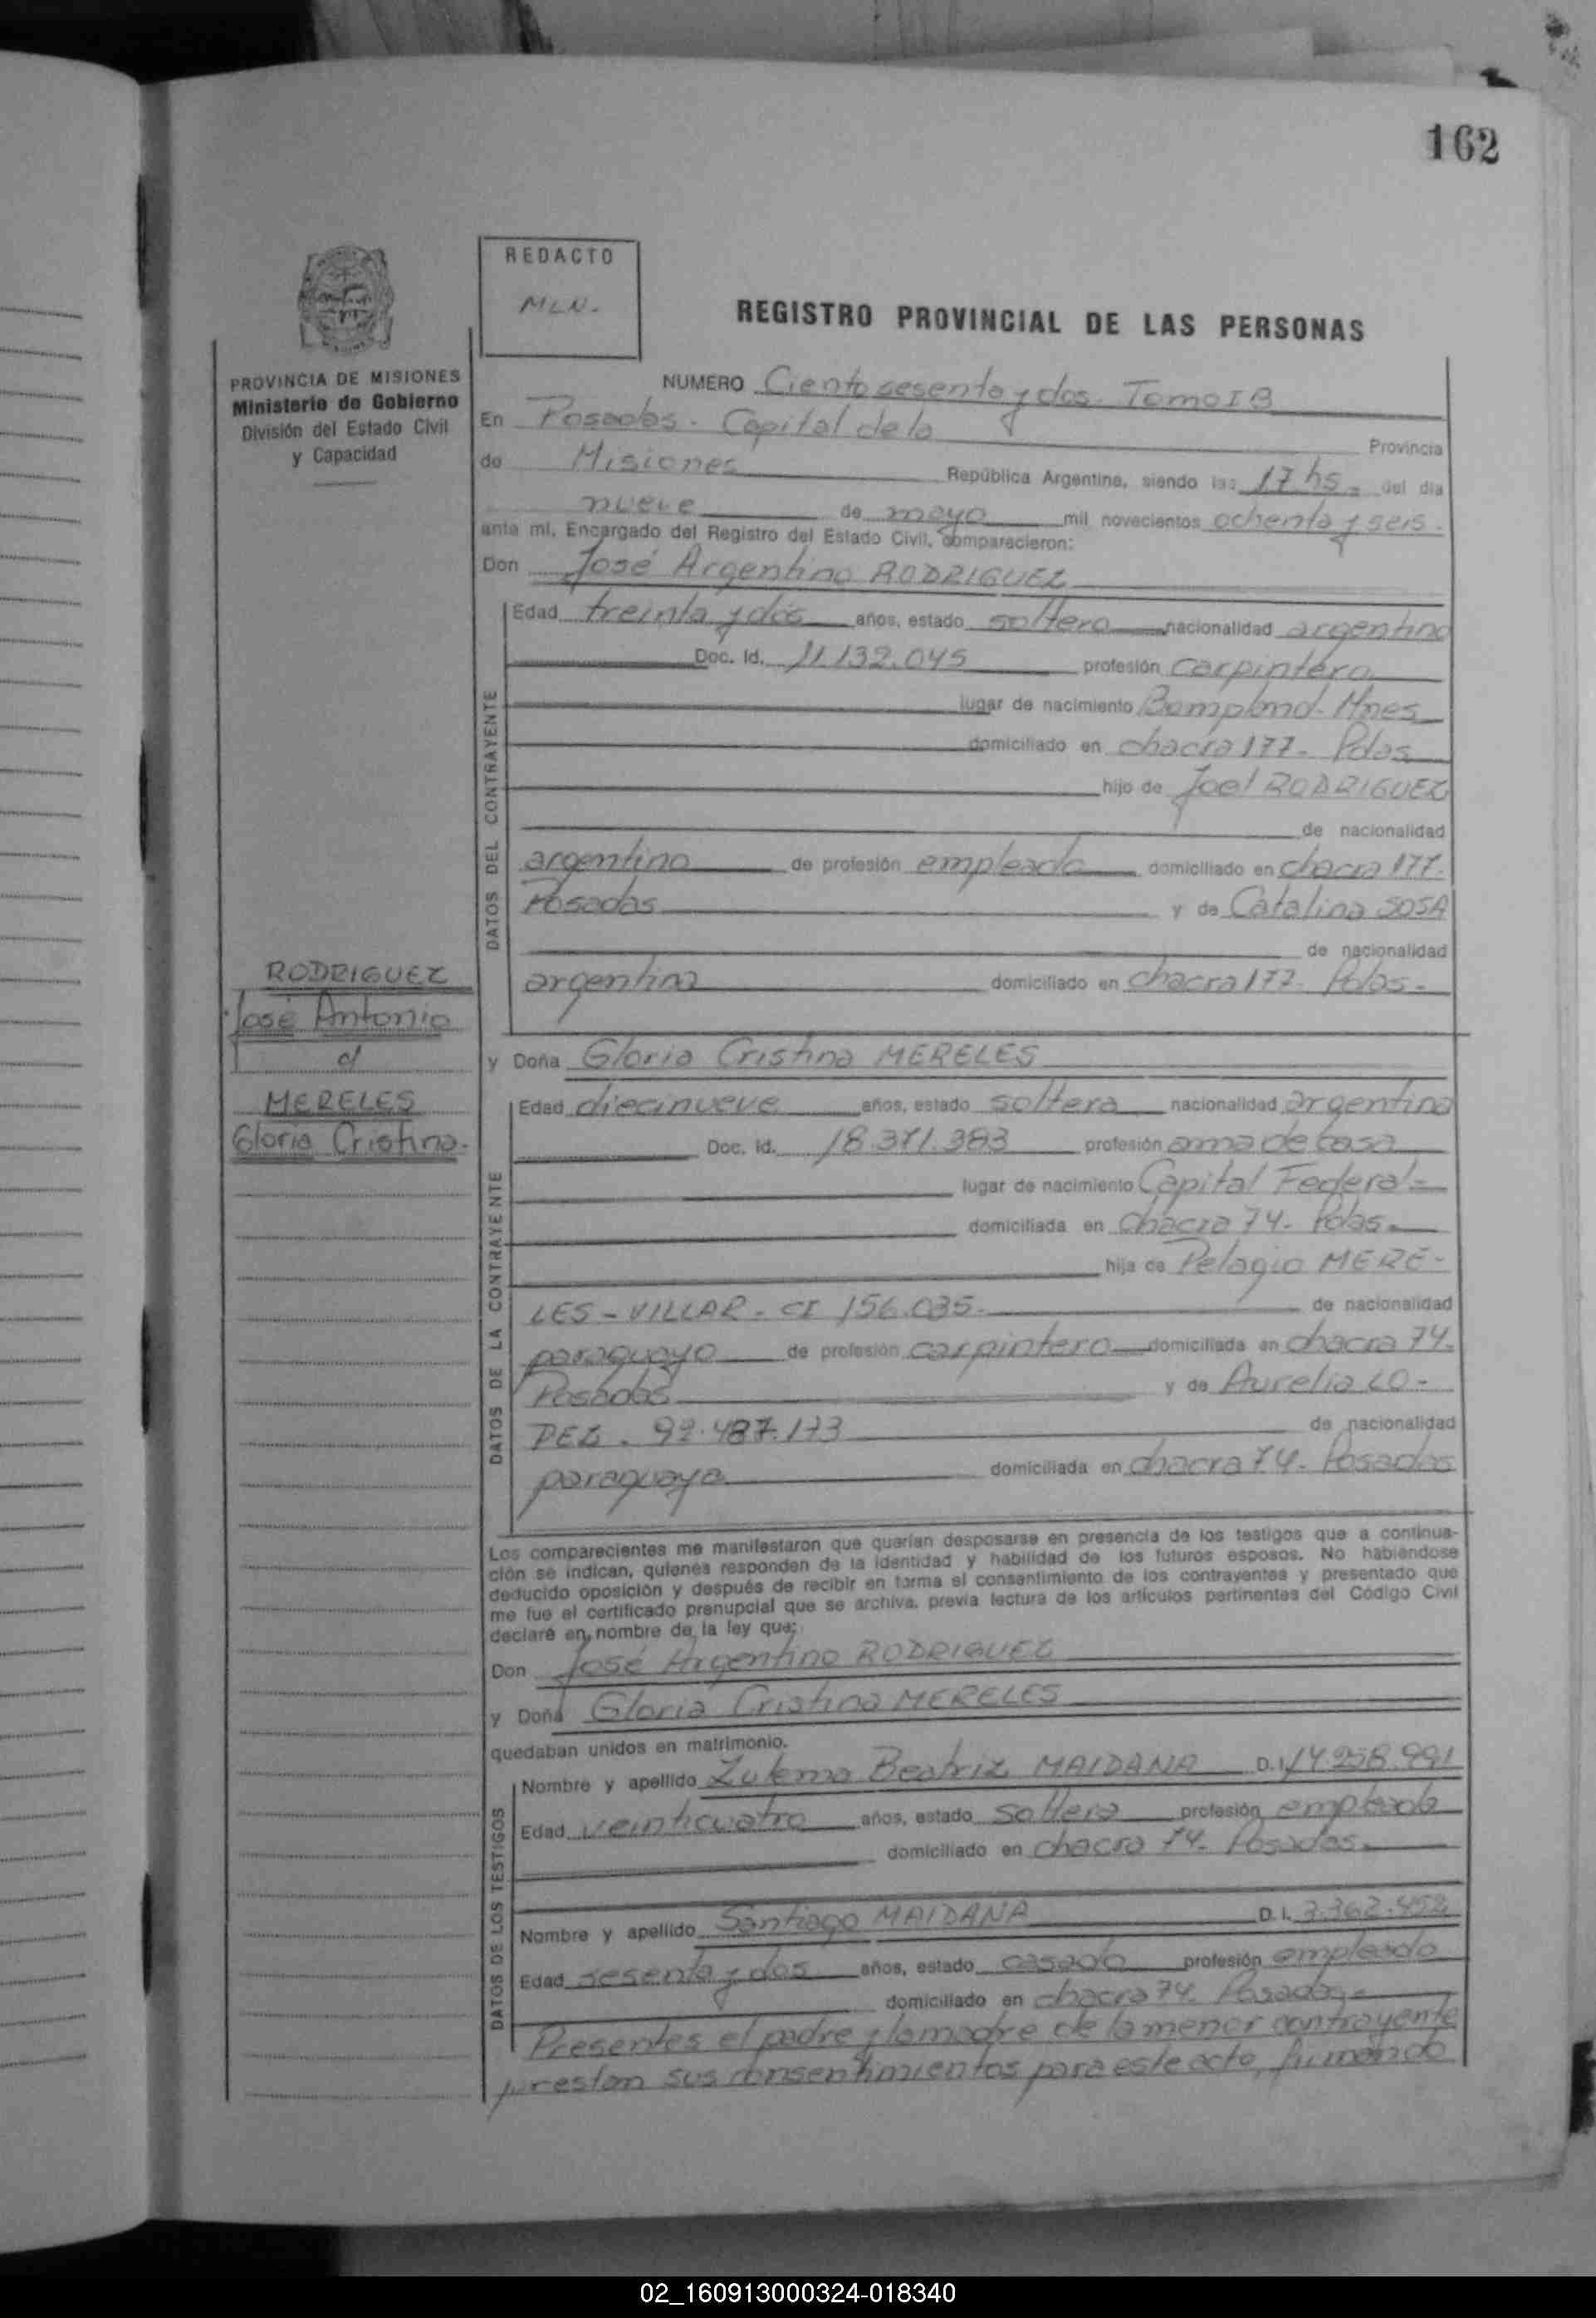 162
REDACTO
MLN.
REGISTRO PROVINCIAL DE LAS PERSONAS
PROVINCIA DE MISIONES
Ministerio de Gobierno
División del Estado Civil
y Capacidad
NUMERO Ciento sesenta y dos. Tomo I B
En Posadas. Capital de la Provincia
de Misiones República Argentina, siendo las 17 hs. del día
nueve de mayo mil novecientos ochenta y seis.
ante mí, Encargado del Registro del Estado Civil, comparecieron:
Don José Argentino RODRIGUEZ
DATOS DEL CONTRAYENTE
Edad treinta y dos años, estado soltero nacionalidad argentino
Doc. Id. 11.132.045 profesión carpintero
lugar de nacimiento Bompland. Mnes
domiciliado en chacra 177. Pdas
hijo de Joel RODRIGUEZ
de nacionalidad
argentino de profesión empleado domiciliado en chacra 177.
Posadas y de Catalina SOSA
de nacionalidad
argentina domiciliado en chacra 177. Pdas.
RODRIGUEZ
José Antonio
c/
MERELES
Gloria Cristina.
y Doña Gloria Cristina MERELES
DATOS DE LA CONTRAYENTE
Edad diecinueve años, estado soltera nacionalidad argentina
Doc. Id. 18.371.383 profesión ama de casa
lugar de nacimiento Capital Federal
domiciliada en chacra 74. Pdas.
hija de Pelagio MERE-
LES - VILLAR - CI 156.035. de nacionalidad
paraguayo de profesión carpintero domiciliada en chacra 74.
Posadas y de Aurelia LO-
PEZ. 92.487.173 de nacionalidad
paraguaya domiciliada en chacra 74. Posadas
Los comparecientes me manifestaron que querían desposarse en presencia de los testigos que a continua-
ción se indican, quienes responden de la identidad y habilidad de los futuros esposos. No habiéndose
deducido oposición y después de recibir en forma el consentimiento de los contrayentes y presentado que
me fue el certificado prenupcial que se archiva, previa lectura de los artículos pertinentes del Código Civil
declaré en nombre de la ley que:
Don José Argentino RODRIGUEZ
y Doña Gloria Cristina MERELES
quedaban unidos en matrimonio.
DATOS DE LOS TESTIGOS
Nombre y apellido Zulema Beatriz MAIDANA D.I. 14.258.991
Edad veinticuatro años, estado soltera profesión empleada
domiciliado en chacra 74. Posadas.
Nombre y apellido Santiago MAIDANA D.I. 3.362.452
Edad sesenta y dos años, estado casado profesión empleado
domiciliado en chacra 74. Posadas.
Presentes el padre y la madre de la menor contrayente
prestan sus consentimientos para este acto, firmando
02_160913000324-018340